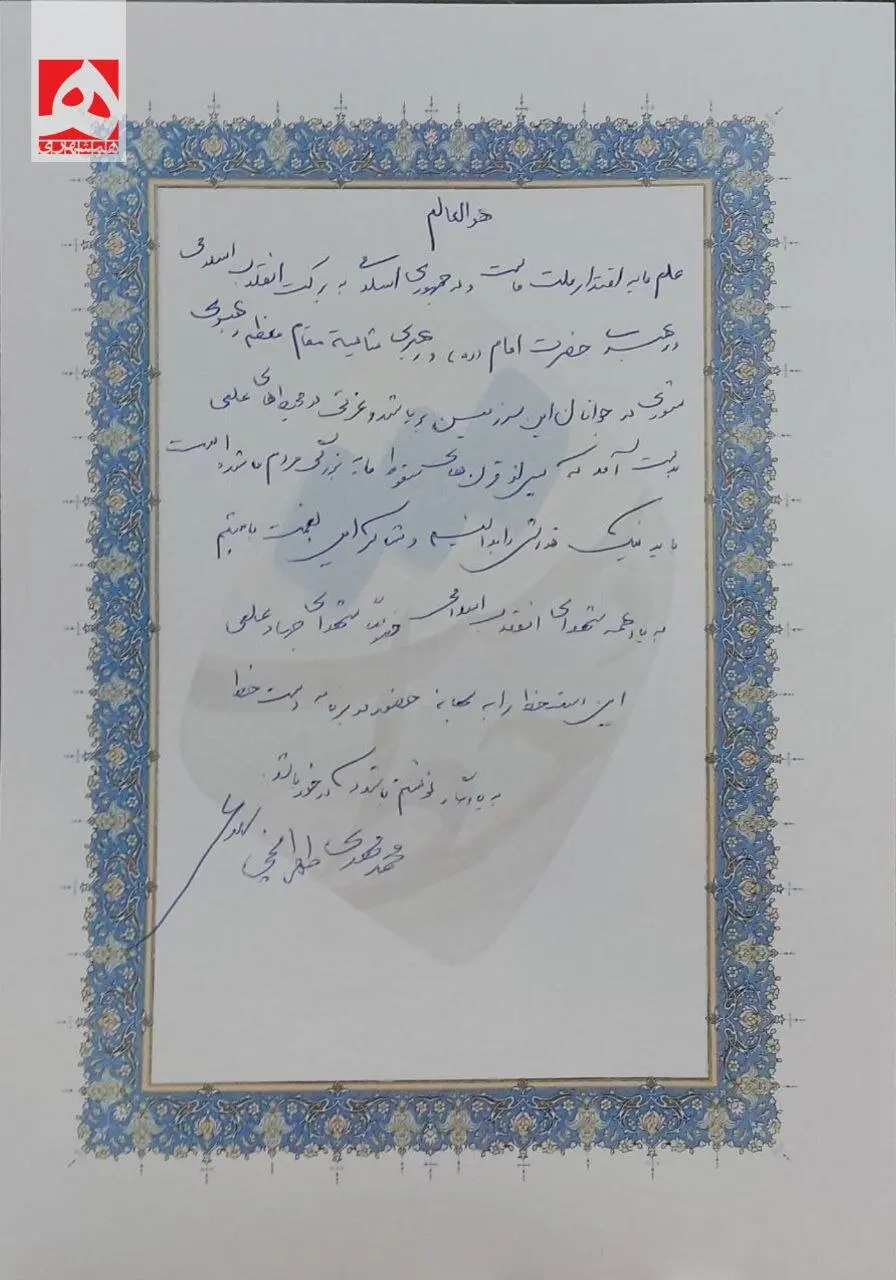 همشهری
هو العالم
علم مایه اقتدار ملت ماست و در جمهوری اسلامی به برکت انقلاب اسلامی
و رهبری حضرت امام (ره) و رهبری مقام معظم رهبری
شوری در جوانان این سرزمین برپا شد و عزتی در محیط‌های علمی
بدست آمد که پس از قرن‌های سقوط مایه بزرگی مردم ما شده است
باید نیک قدرش را بدانیم و شاکر این نعمت باشیم
به یاد همه شهدای انقلاب اسلامی خاصه شهدای جهاد علمی
این دست خط را به بهانه حضور در برنامه دست خط
به یادگار نوشتم باشد که در خور باشد.
محمد مهدی طهرانچی